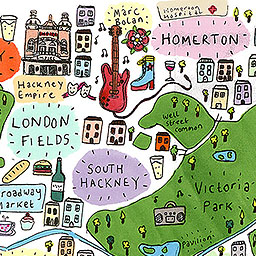 Marc
Bolan
Homerton
Hospital
HOMERTON
Hackney
Empire
LONDON
FIELDS
Well
Street
Common
SOUTH
HACKNEY
Victoria
Park
Broadway
Market
Pavilion